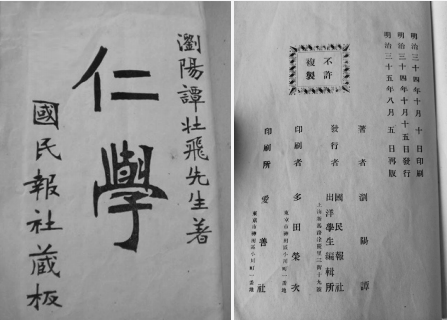 瀏陽譚壯飛先生著
仁學
國民報社蔵板
明治三十四年十月十日印刷
明治三十四年十月十五日發行
明治三十五年八月五日再版
不許
複製
著者 瀏陽譚
發行者 國民報社
出洋學生編輯所
印刷者 多田榮次
東京市神田區小河町一番地
印刷所 愛善社
東京市神田區小河町一番地